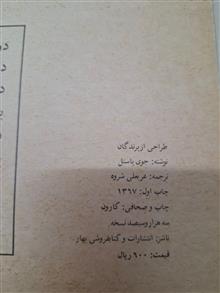 طراحی از پرندگان
نوشته: جوی پاستل
ترجمه: عربعلی شروه
چاپ اول: ۱۳۶۷
چاپ و صحافی: کارون
سه هزار و سیصد نسخه
ناشر: انتشارات و کتابفروشی بهار
قیمت: ۶۰۰ ریال